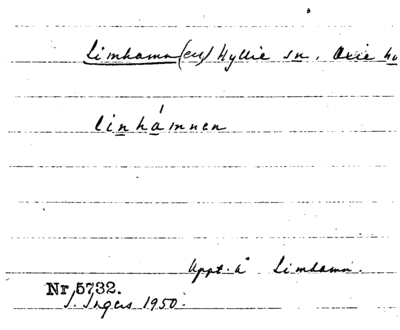 Limhamn (en) Hyllie sn, Oxie
linhámnen
Uppt. i Limhamn.
Nr 5732.
I. Ingers 1950.